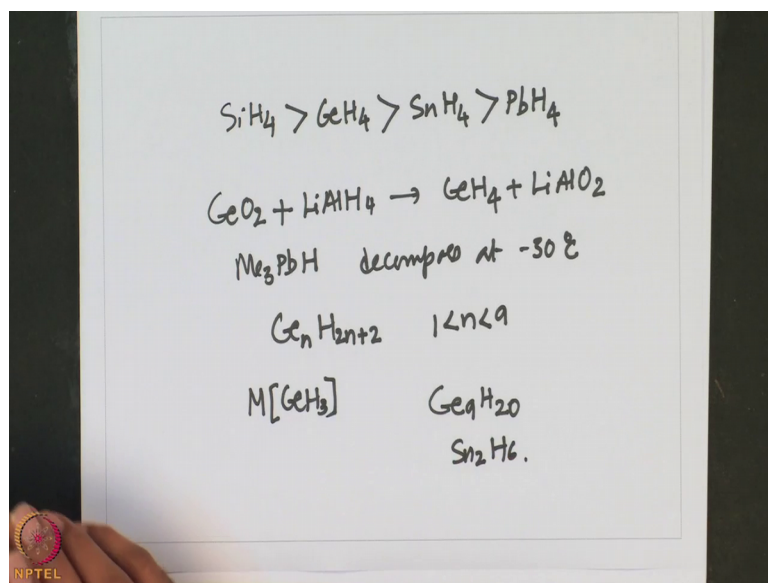 SiH₄ > GeH₄ > SnH₄ > PbH₄
GeO₂ + LiAlH₄ → GeH₄ + LiAlO₂
Me₃PbH decompses at -30 ℃
GenH₂n+₂ 1<n<9
M[GeH₃] Ge₉H₂₀
Sn₂H₆.
NPTEL